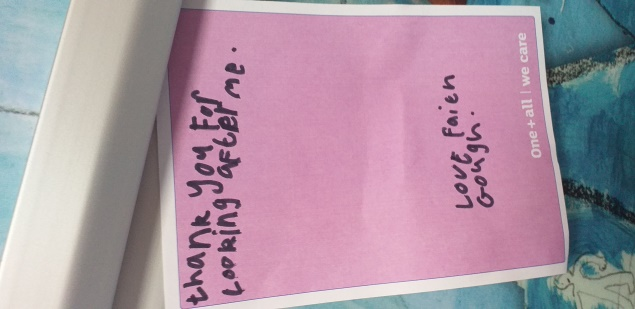 thank you For
Looking after me.
Love Faien
Gough.
One + all | we care